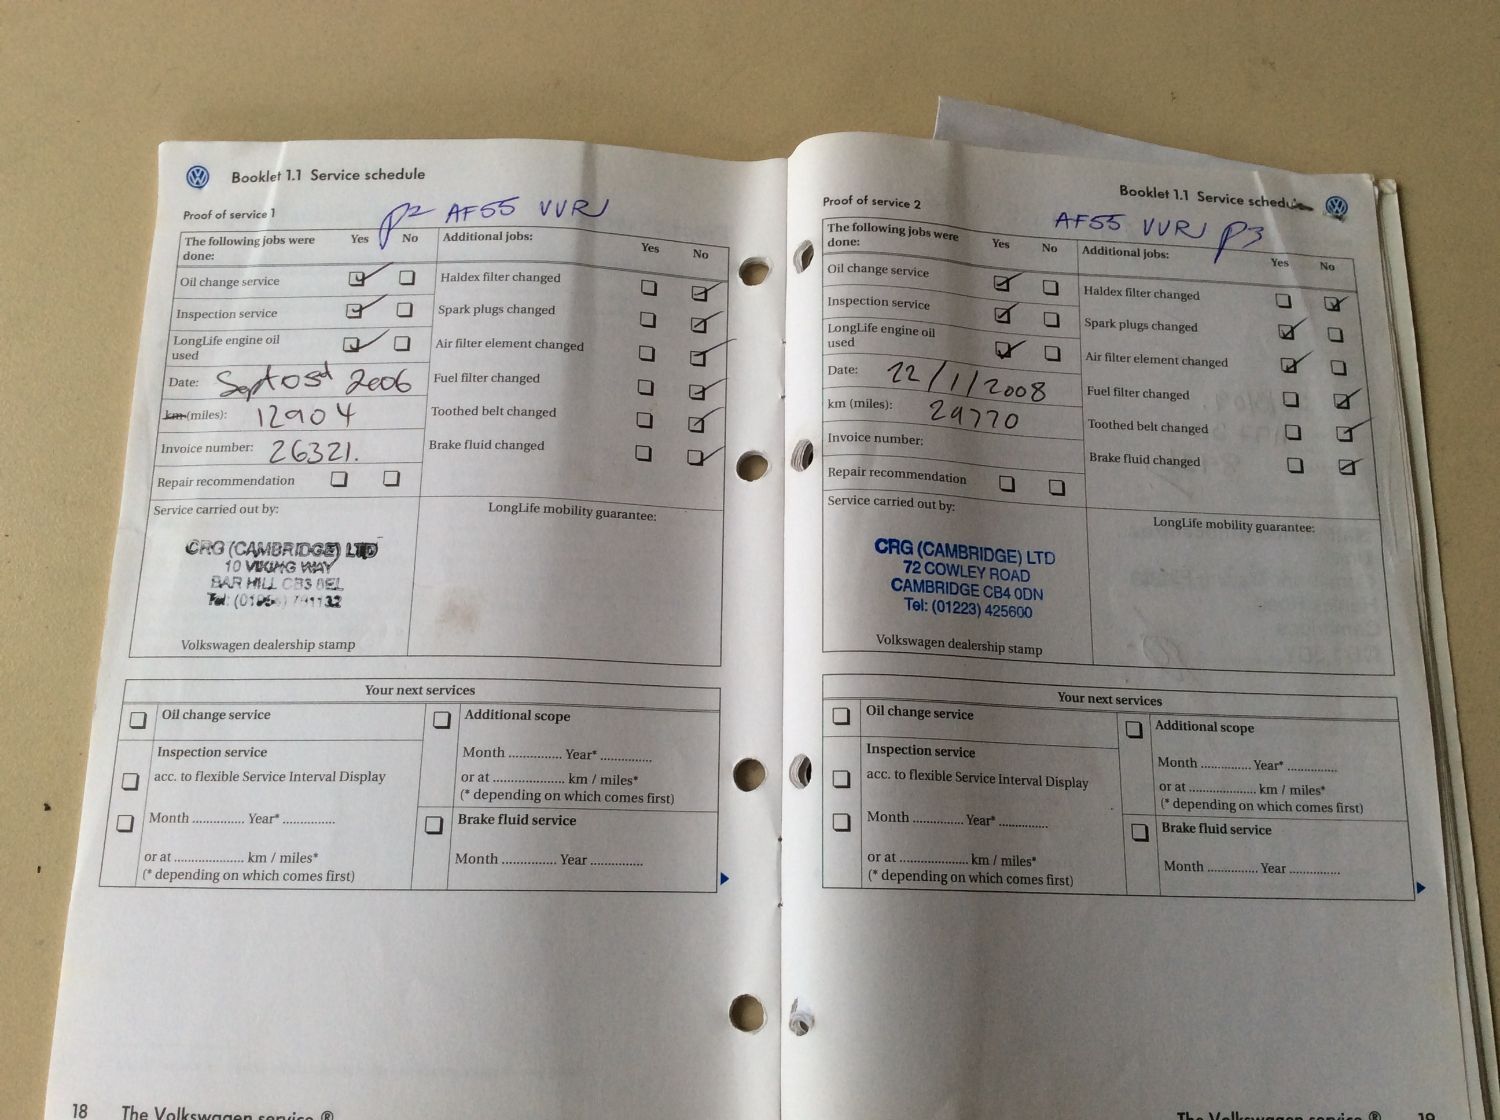 Booklet 1.1 Service schedule
Proof of service 1
p2 AF55 VVR
The following jobs were done:
Yes No
Additional jobs:
Yes No
Oil change service
Inspection service
LongLife engine oil
used
Date: Sept 05 2006
km (miles): 12904
Invoice number: 26321.
Repair recommendation
Haldex filter changed
Spark plugs changed
Air filter element changed
Fuel filter changed
Toothed belt changed
Brake fluid changed
Service carried out by:
LongLife mobility guarantee:
CRG (CAMBRIDGE) LTD
10 VIKING WAY
BAR HILL CB3 8EL
Tel:
Volkswagen dealership stamp
Your next services
Oil change service
Inspection service
acc. to flexible Service Interval Display
Month .............. Year* ..............
or at .................... km / miles*
(* depending on which comes first)
Additional scope
Month .............. Year* ..............
or at .................... km / miles*
(* depending on which comes first)
Brake fluid service
Month .............. Year ..............
18 The Volkswagen service ®
Booklet 1.1 Service
Proof of service 2
AF55 VVR p3
The following jobs were
done:
Yes No
Additional jobs:
Yes No
Oil change service
Inspection service
LongLife engine oil
used
Date: 22/1/2008
km (miles): 29770
Invoice number:
Repair recommendation
Haldex filter changed
Spark plugs changed
Air filter element changed
Fuel filter changed
Toothed belt changed
Brake fluid changed
Service carried out by:
LongLife mobility guarantee:
CRG (CAMBRIDGE) LTD
72 COWLEY ROAD
CAMBRIDGE CB4 0DN
Tel: (01223) 425600
Volkswagen dealership stamp
Your next services
Oil change service
Inspection service
acc. to flexible Service Interval Display
Month .............. Year* ..............
or at .................... km / miles*
(* depending on which comes first)
Additional scope
Month .............. Year* ..............
or at .................... km / miles*
(* depending on which comes first)
Brake fluid service
Month .............. Year ..............
The Volkswagen service ® 19